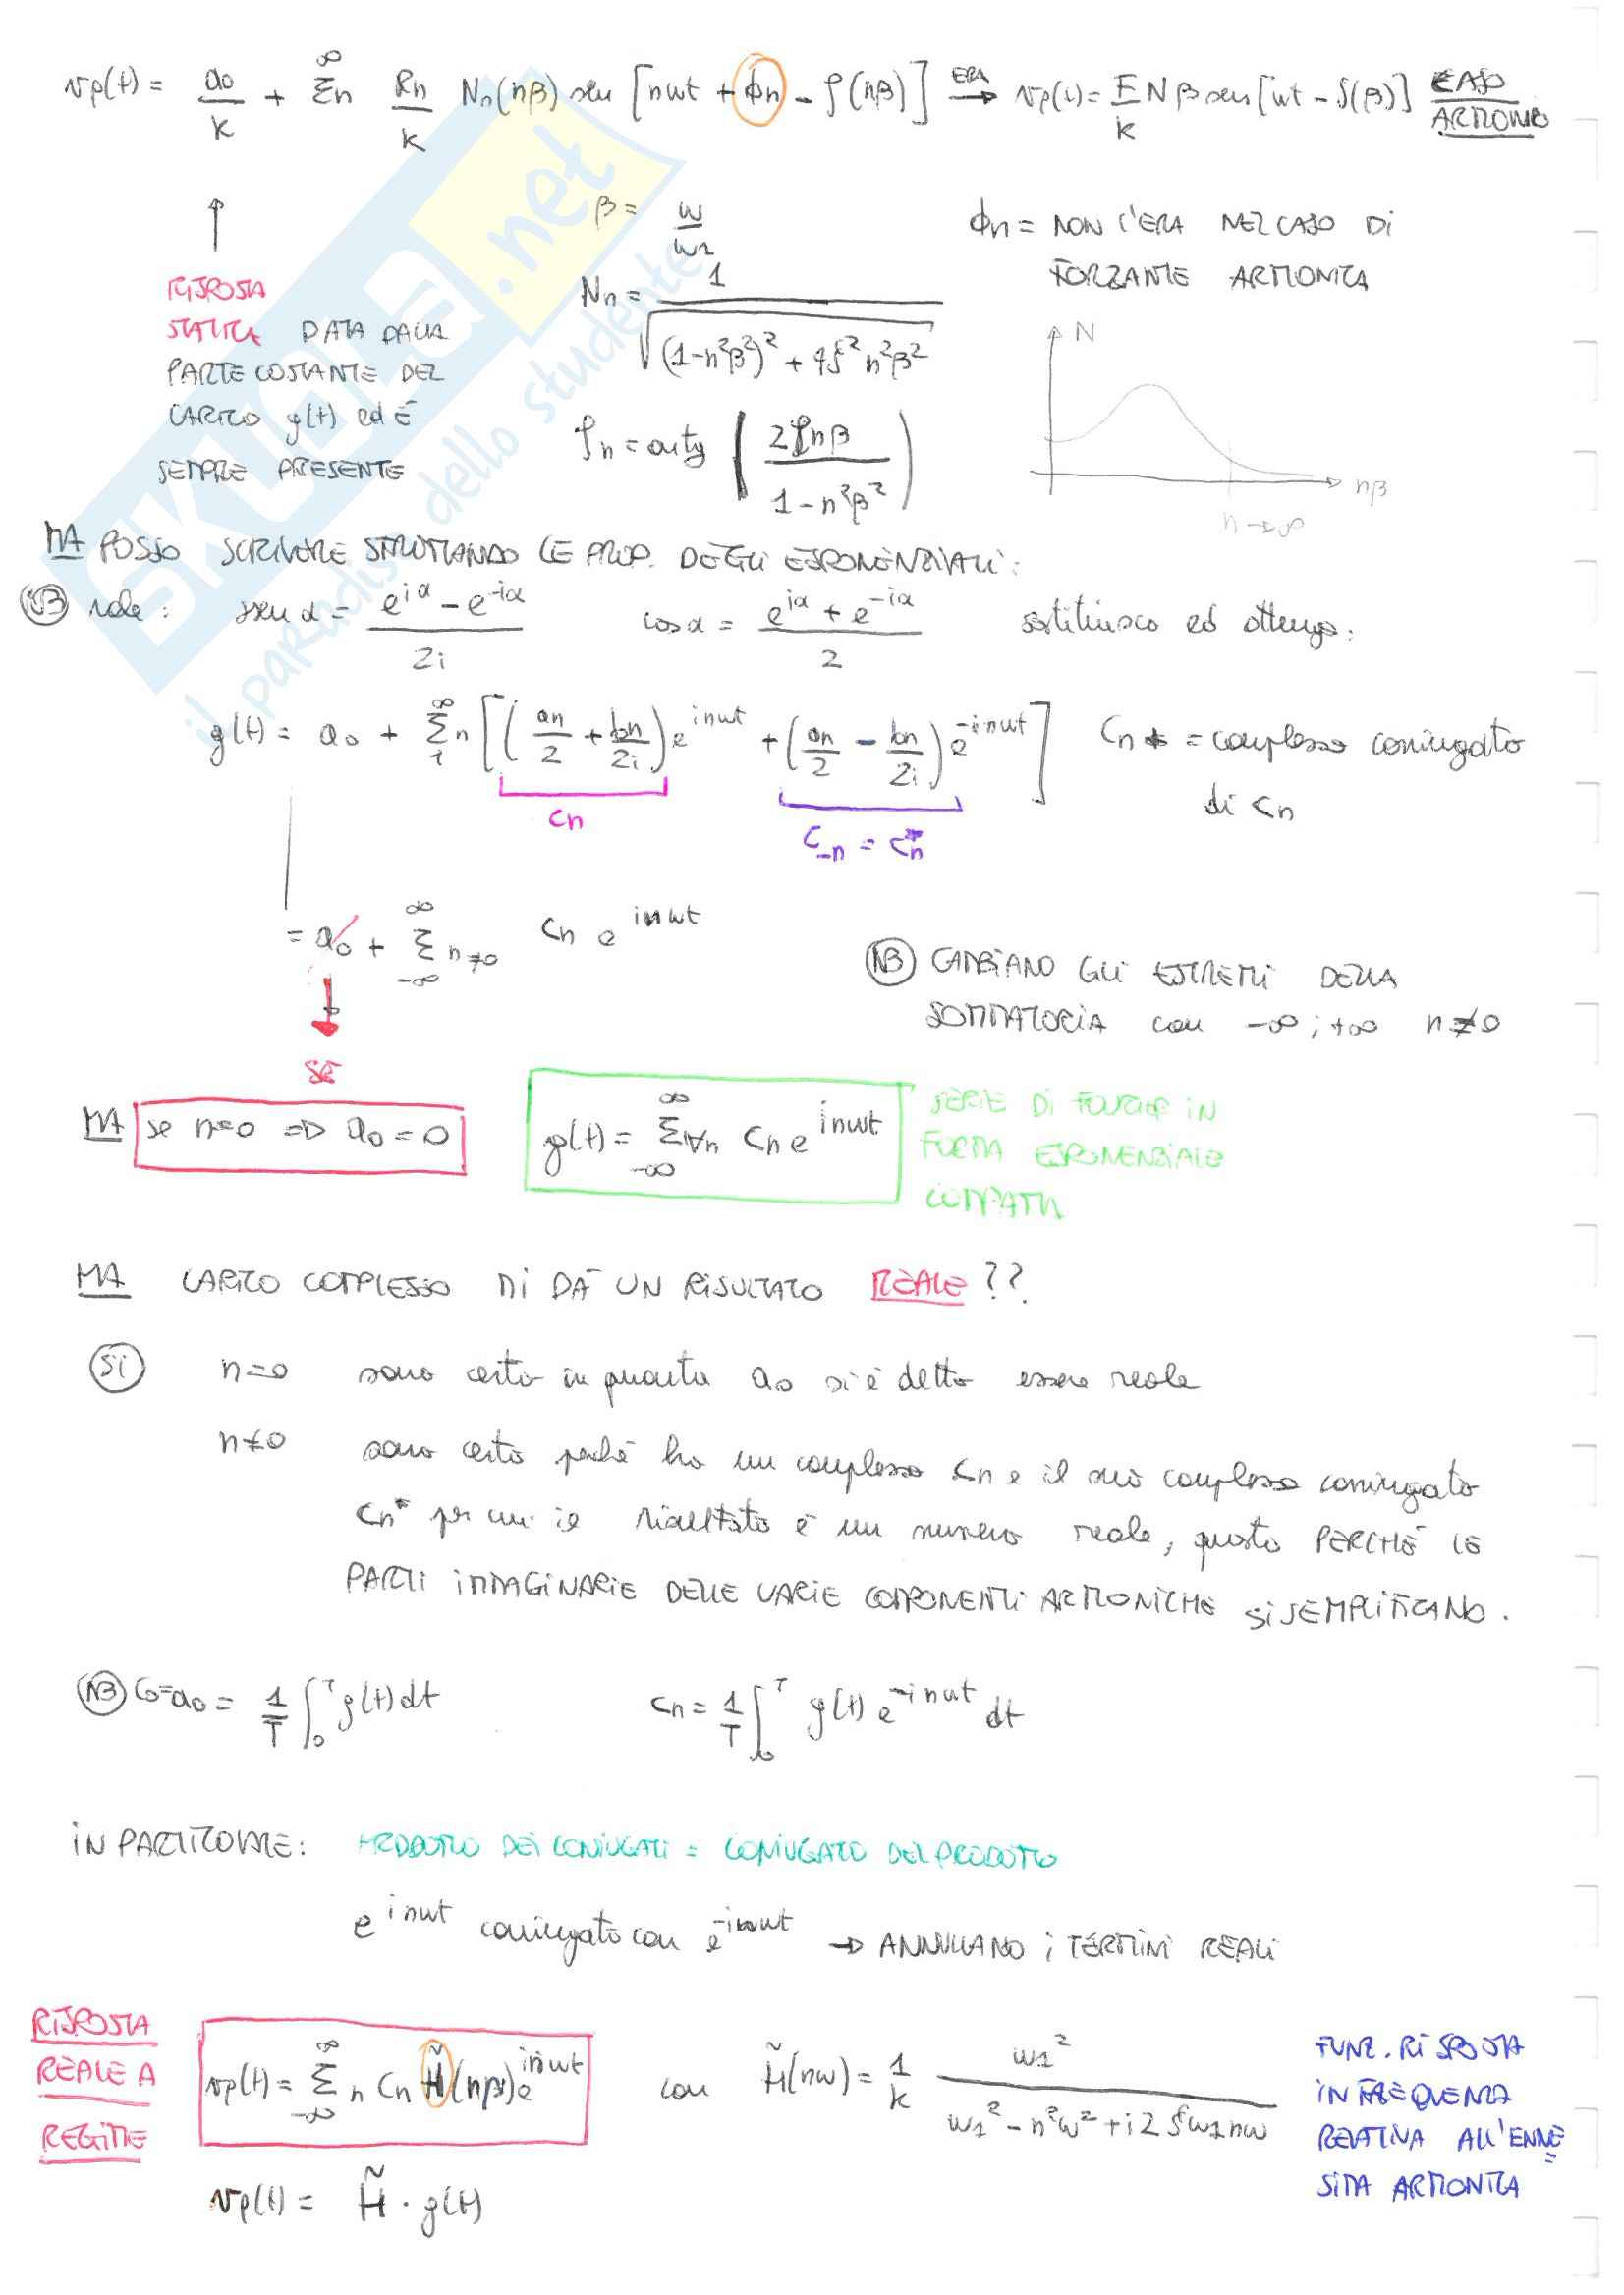 vp(t) = a0/k + Σn ∞ Rn/k Nn(nβ) sen [nωt + ϕn - ρ(nβ)] ERA → vp(t) = F/k N β sen [ωt - ρ(β)] CASO ARMONICO
↑
RISPOSTA STATICA DATA DALLA PARTE COSTANTE DEL CARICO g(t) ed È SEMPRE PRESENTE
β = ω/ω1
Nn = 1/√((1-n²β²)² + 4ξ²n²β²)
ρn = arctg (2ξnβ / (1-n²β²))
ϕn = NON C'ERA NEL CASO DI FORZANTE ARMONICA
N
nβ
n→∞
MA POSSO SCRIVERE SFRUTTANDO LE PROP. DEGLI ESPONENZIALI:
NB vale: sen α = (e^iα - e^-iα)/2i cos α = (e^iα + e^-iα)/2 sostituisco ed ottengo:
g(t) = a0 + Σn 1 ∞ [(an/2 + bn/2i) e^inωt + (an/2 - bn/2i) e^-inωt] Cn* = complesso coniugato di Cn
Cn
C-n = Cn*
= a0 + Σ n≠0 -∞ ∞ Cn e^inωt
NB CAMBIANO GLI ESTREMI DELLA SOMMATORIA con -∞; +∞ n≠0
SE
MA se n=0 => a0 = 0
g(t) = Σ∀n -∞ ∞ Cn e^inωt
SERIE DI FOURIER IN FORMA ESPONENZIALE COMPATTA
MA CARICO COMPLESSO MI DÀ UN RISULTATO REALE??
SI n=0 sono certo in quanto a0 si è detto essere reale
n≠0 sono certo perchè ho un complesso Cn e il suo complesso coniugato
Cn* per cui il risultato è un numero reale, questo PERCHÈ LE
PARTI IMMAGINARIE DELLE VARIE COMPONENTI ARMONICHE SI SEMPLIFICANO.
NB C0=a0 = 1/T ∫0 T g(t) dt Cn = 1/T ∫0 T g(t) e^-inωt dt
IN PARTICOLARE: PRODOTTO DEI CONIUGATI = CONIUGATO DEL PRODOTTO
e^inωt coniugato con e^-inωt → ANNULLANO i TERMINI REALI
RISPOSTA REALE A REGIME
vp(t) = Σn -∞ ∞ Cn H̃(nβ) e^inωt con H̃(nω) = 1/k ω1²/(ω1² - n²ω² + i2ξω1nω)
FUNZ. RISPOSTA IN FREQUENZA RELATIVA ALL'ENNESIMA ARMONICA
vp(t) = H̃ · g(t)
SKUOLA.net
il paradiso dello studente